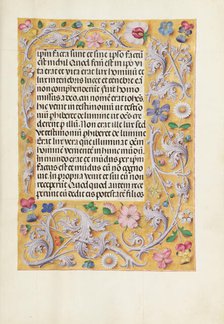 ipm facta sunt et sine ipso factū
est nichil Quod factū est in ipo vi
ta erat et vita erat lux hominū et
lux in tenebris lucet et tenebre eam
non comprehenderūt fuit homo
missus a deo cui nomē erat iohēs
hic venit in testimoniū ut testimoniū
phiberet de lumine ut oēs cre
derent p illū Non erat ille lux sed
ut testimoniū phiberet de lumine
Erat lux vera que illuminat om̄ē
hominē venientē in hunc mundū
In mundo erat et mūdus per ipm
factus est et mūdus eū nō cognō
uit In propria venit et sui eū non
receperūt Quotquot autem
receperūt eū dedit eis potestatē filios